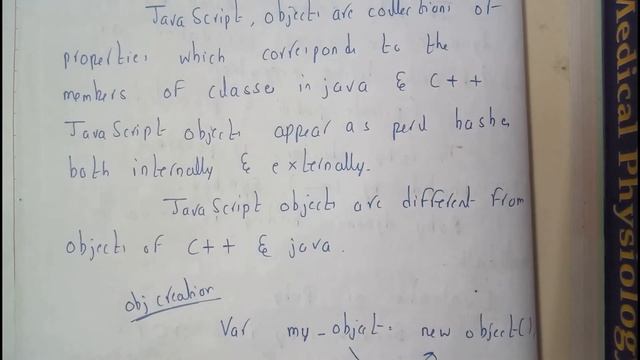 JavaScript, objects are collections of
properties which corresponds to the
members of classes in java & C++
JavaScript objects appear as perl hashes
both internally & externally.
JavaScript objects are different from
objects of C++ & java.
obj creation
Var my_object = new object();
Medical Physiology